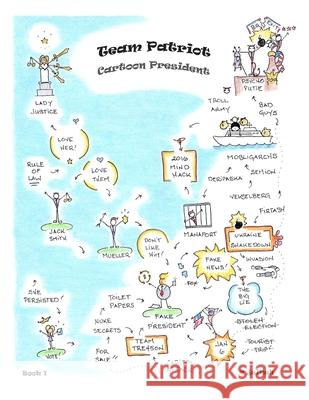 Team Patriot
Cartoon President
LADY
JUSTICE
PSYCHO
PUTIE
TROLL
ARMY
BAD
GUYS
LOVE
HER!
LOVE
THEM
RULE
OF
LAW
2016
MIND
HACK
MOBLIGARCHS
SEMION
DERIPASKA
VEKSELBERG
FIRTASH
JACK
SMITH
MUELLER
DON'T
LIKE
HIM!
MANAFORT
UKRAINE
SHAKEDOWN
INVASION
FAKE
NEWS!
THE
BIG
LIE
SHE
PERSISTED!
TOILET
PAPERS
NUKE
SECRETS
FOR
FAKE
PRESIDENT
STOLEN
ELECTION
TOURIST
TRIP!
VOTE!
TEAM
TRE45ON
JAN
6
Book 1